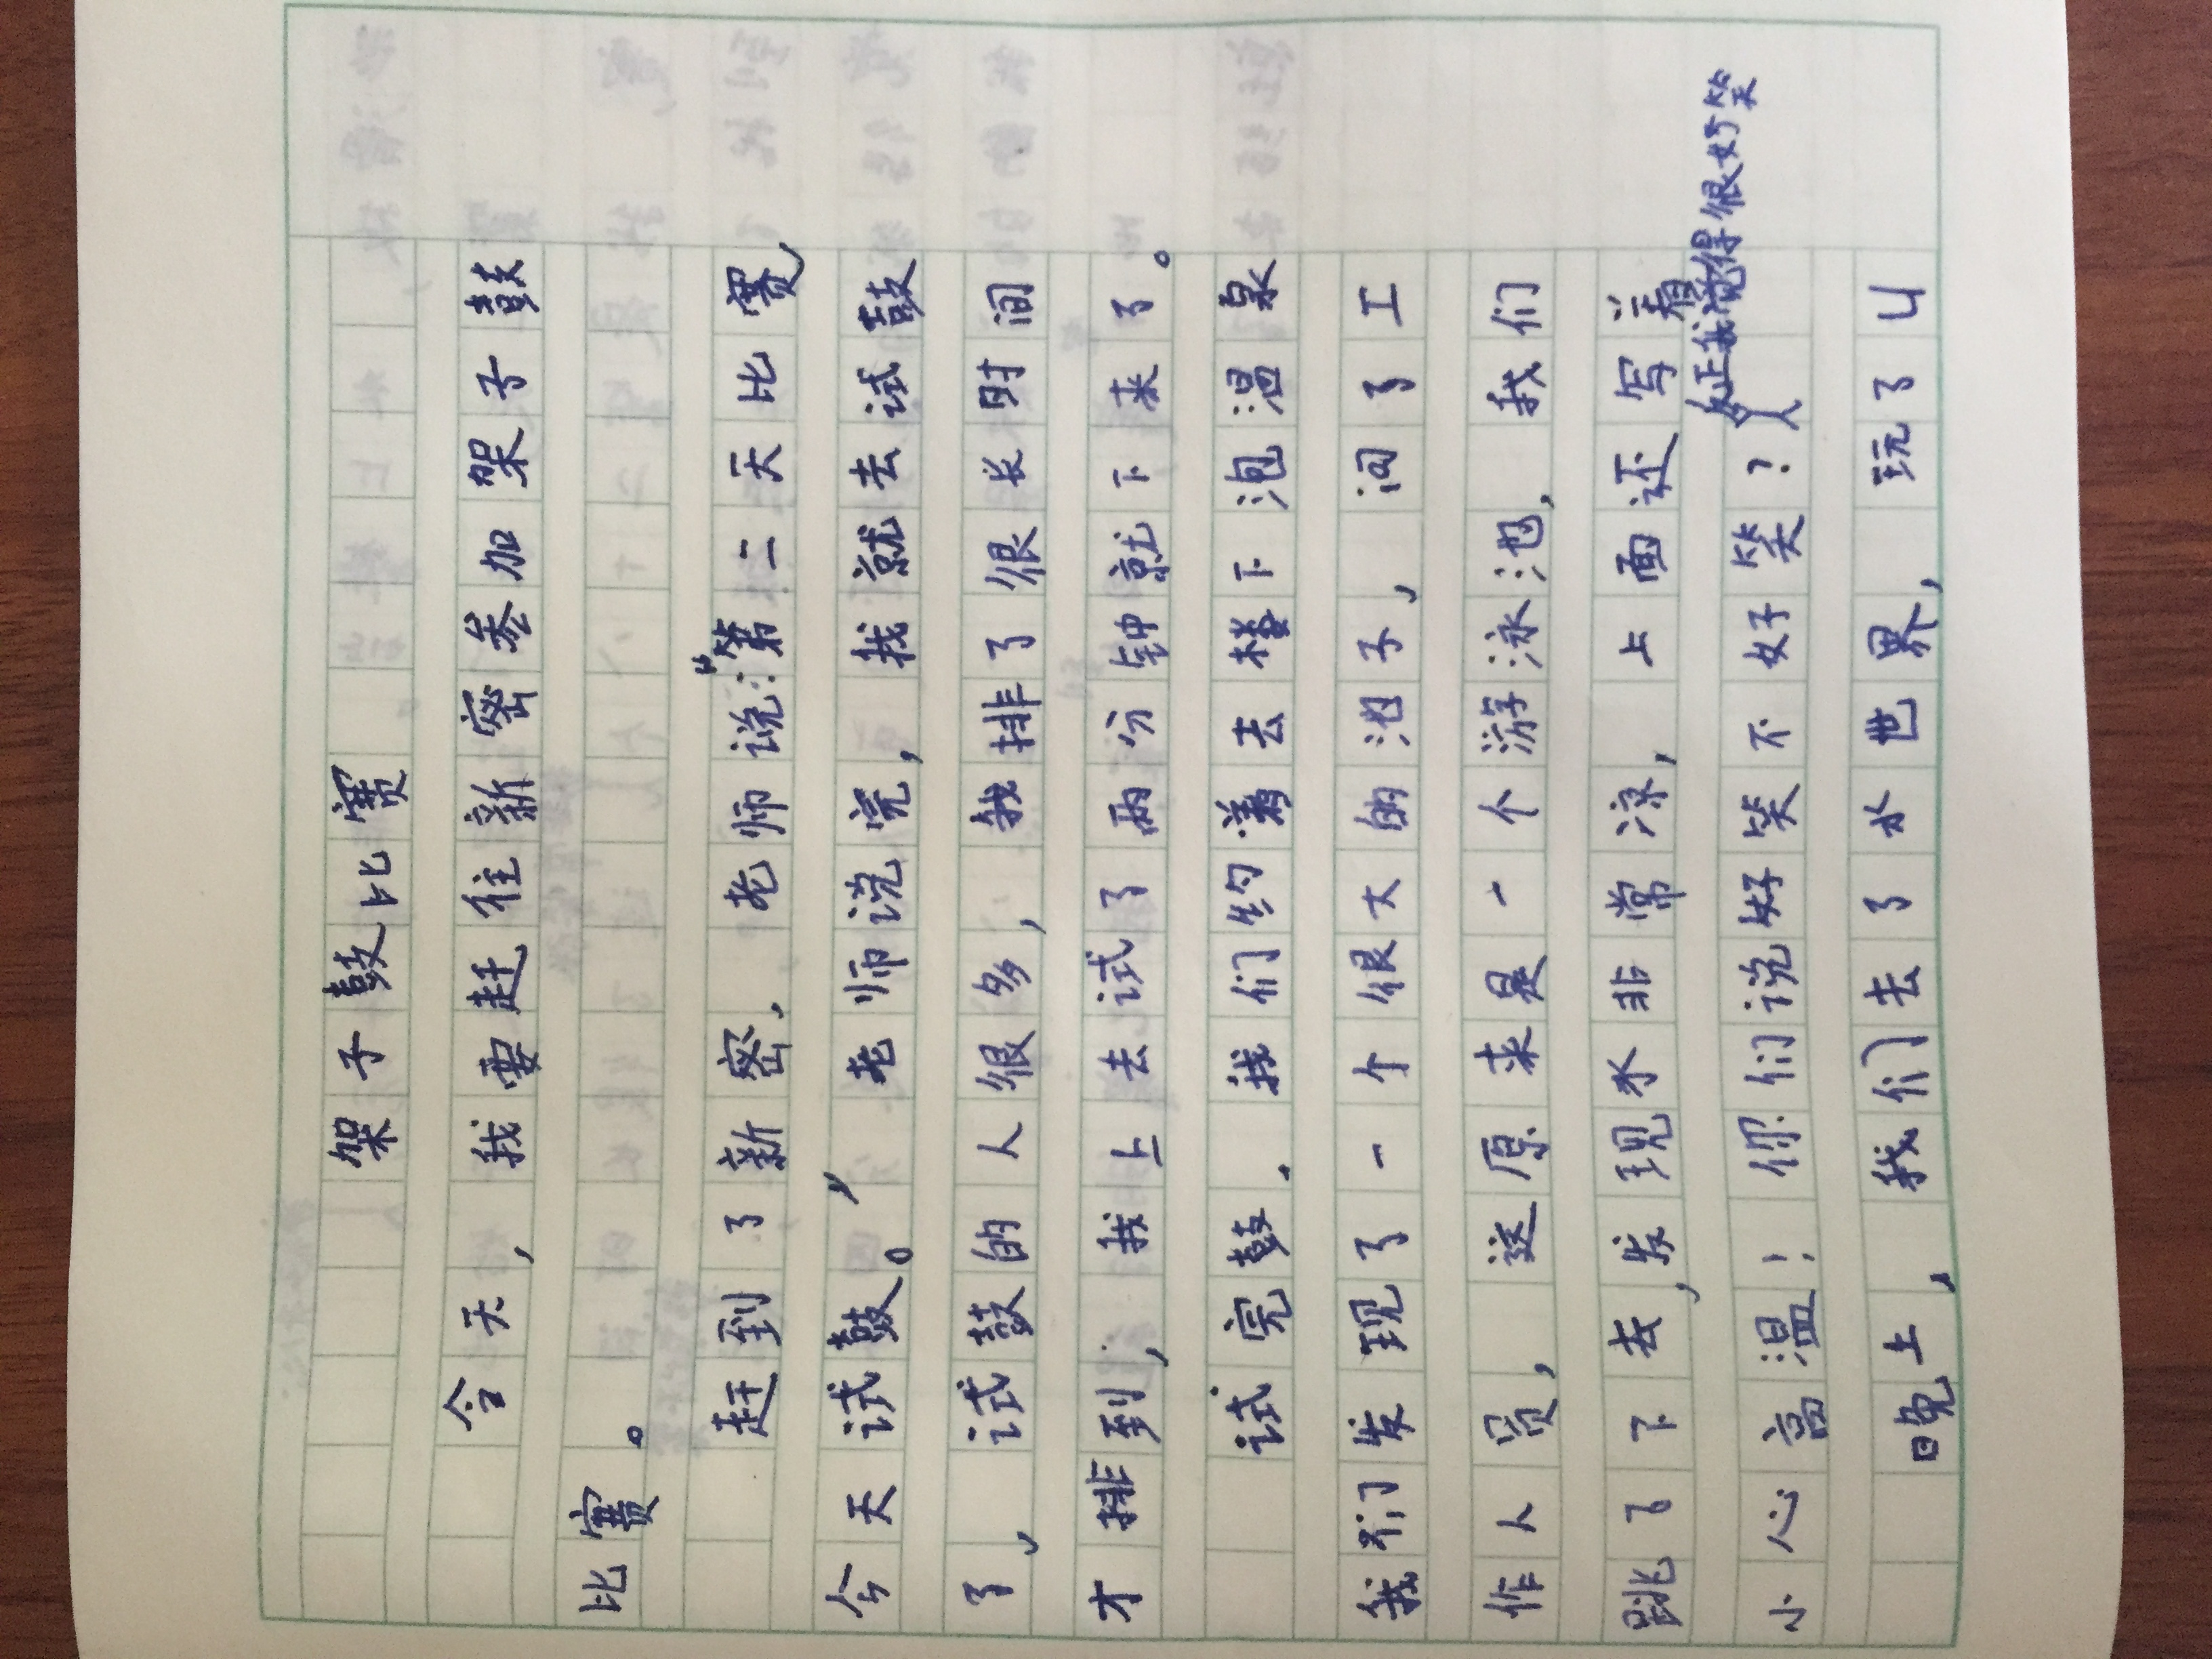 架子鼓比赛
今天，我要赶往新密参加架子鼓
比赛。
赶到了新密，老师说：“第二天比赛，
今天试鼓。”老师说完，我就去试鼓
了，试鼓的人很多，我排了很长时间
才排到，我上去试了两分钟就下来了。
试完鼓，我们约着去楼下泡温泉
我们发现了一个很大的池子，问了工
作人员，这原来是一个游泳池，我们
跳了下去，发现水非常凉，上面还写着
小心高温！你们说好笑不好笑？反正我觉得很好笑
晚上，我们去了水世界，玩了山